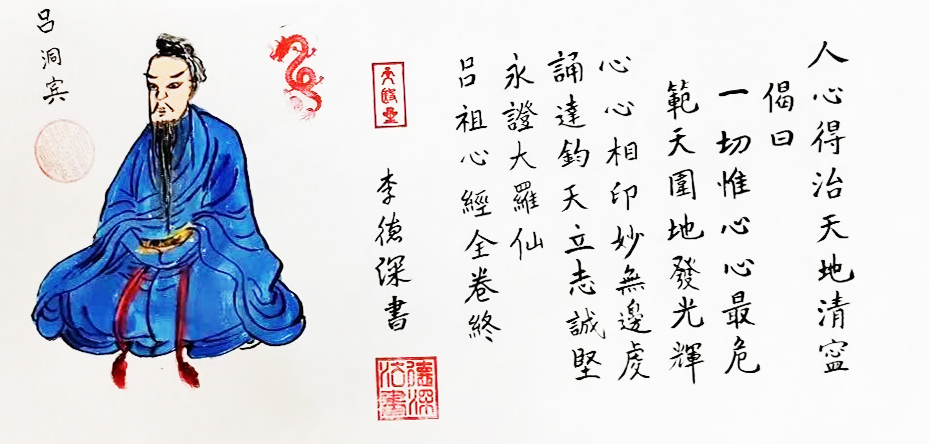 人心得治天地清寍
偈曰
一切惟心心最危
範天圍地發光輝
心心相印妙無邊
虔誦達鈞天立志誠堅
永證大羅仙
呂祖心經全卷終
李德深書
呂洞宾